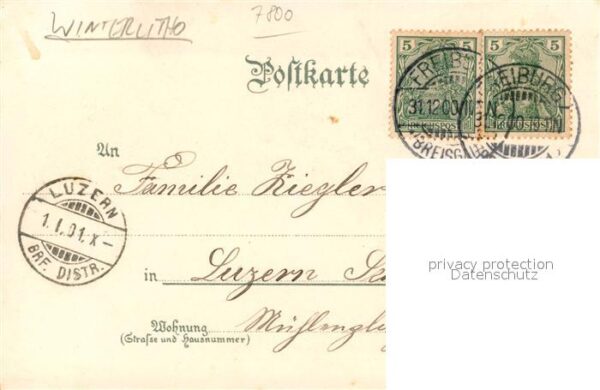 WINTERLITHO
7800
Postkarte
5 5 5 5
REICHSPOST
FREIBURG
31.12.00
(BREISGAU
An
Familie Ziegler
LUZERN
1.I.01.X-
BRF. DISTR.
in Luzern
privacy protection
Datenschutz
Wohnung
(Straße und Hausnummer)